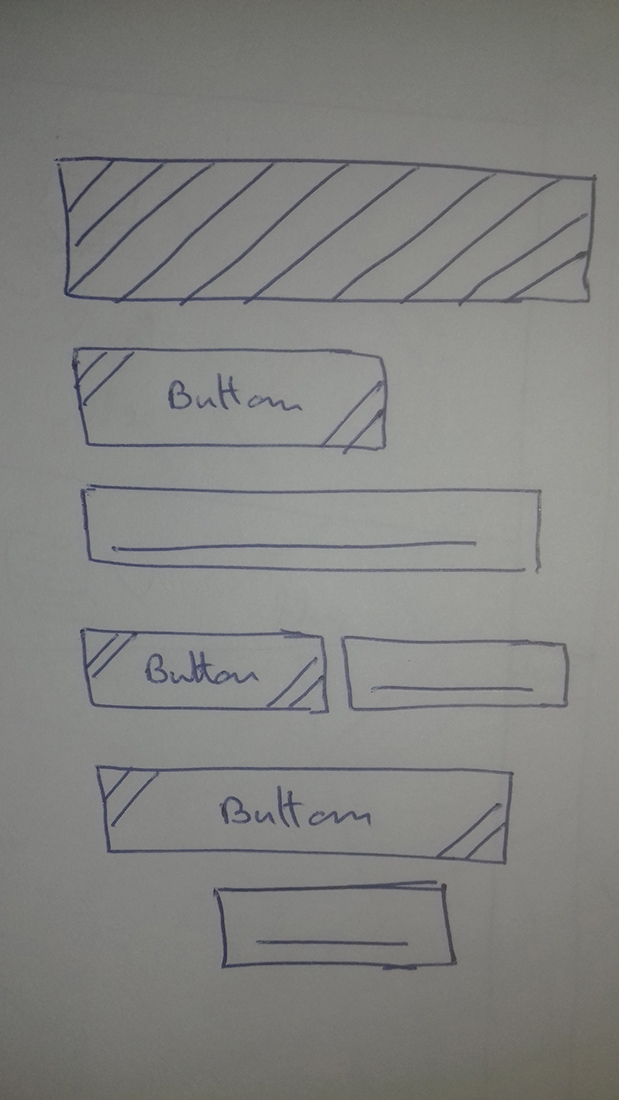 Button
Button
Button